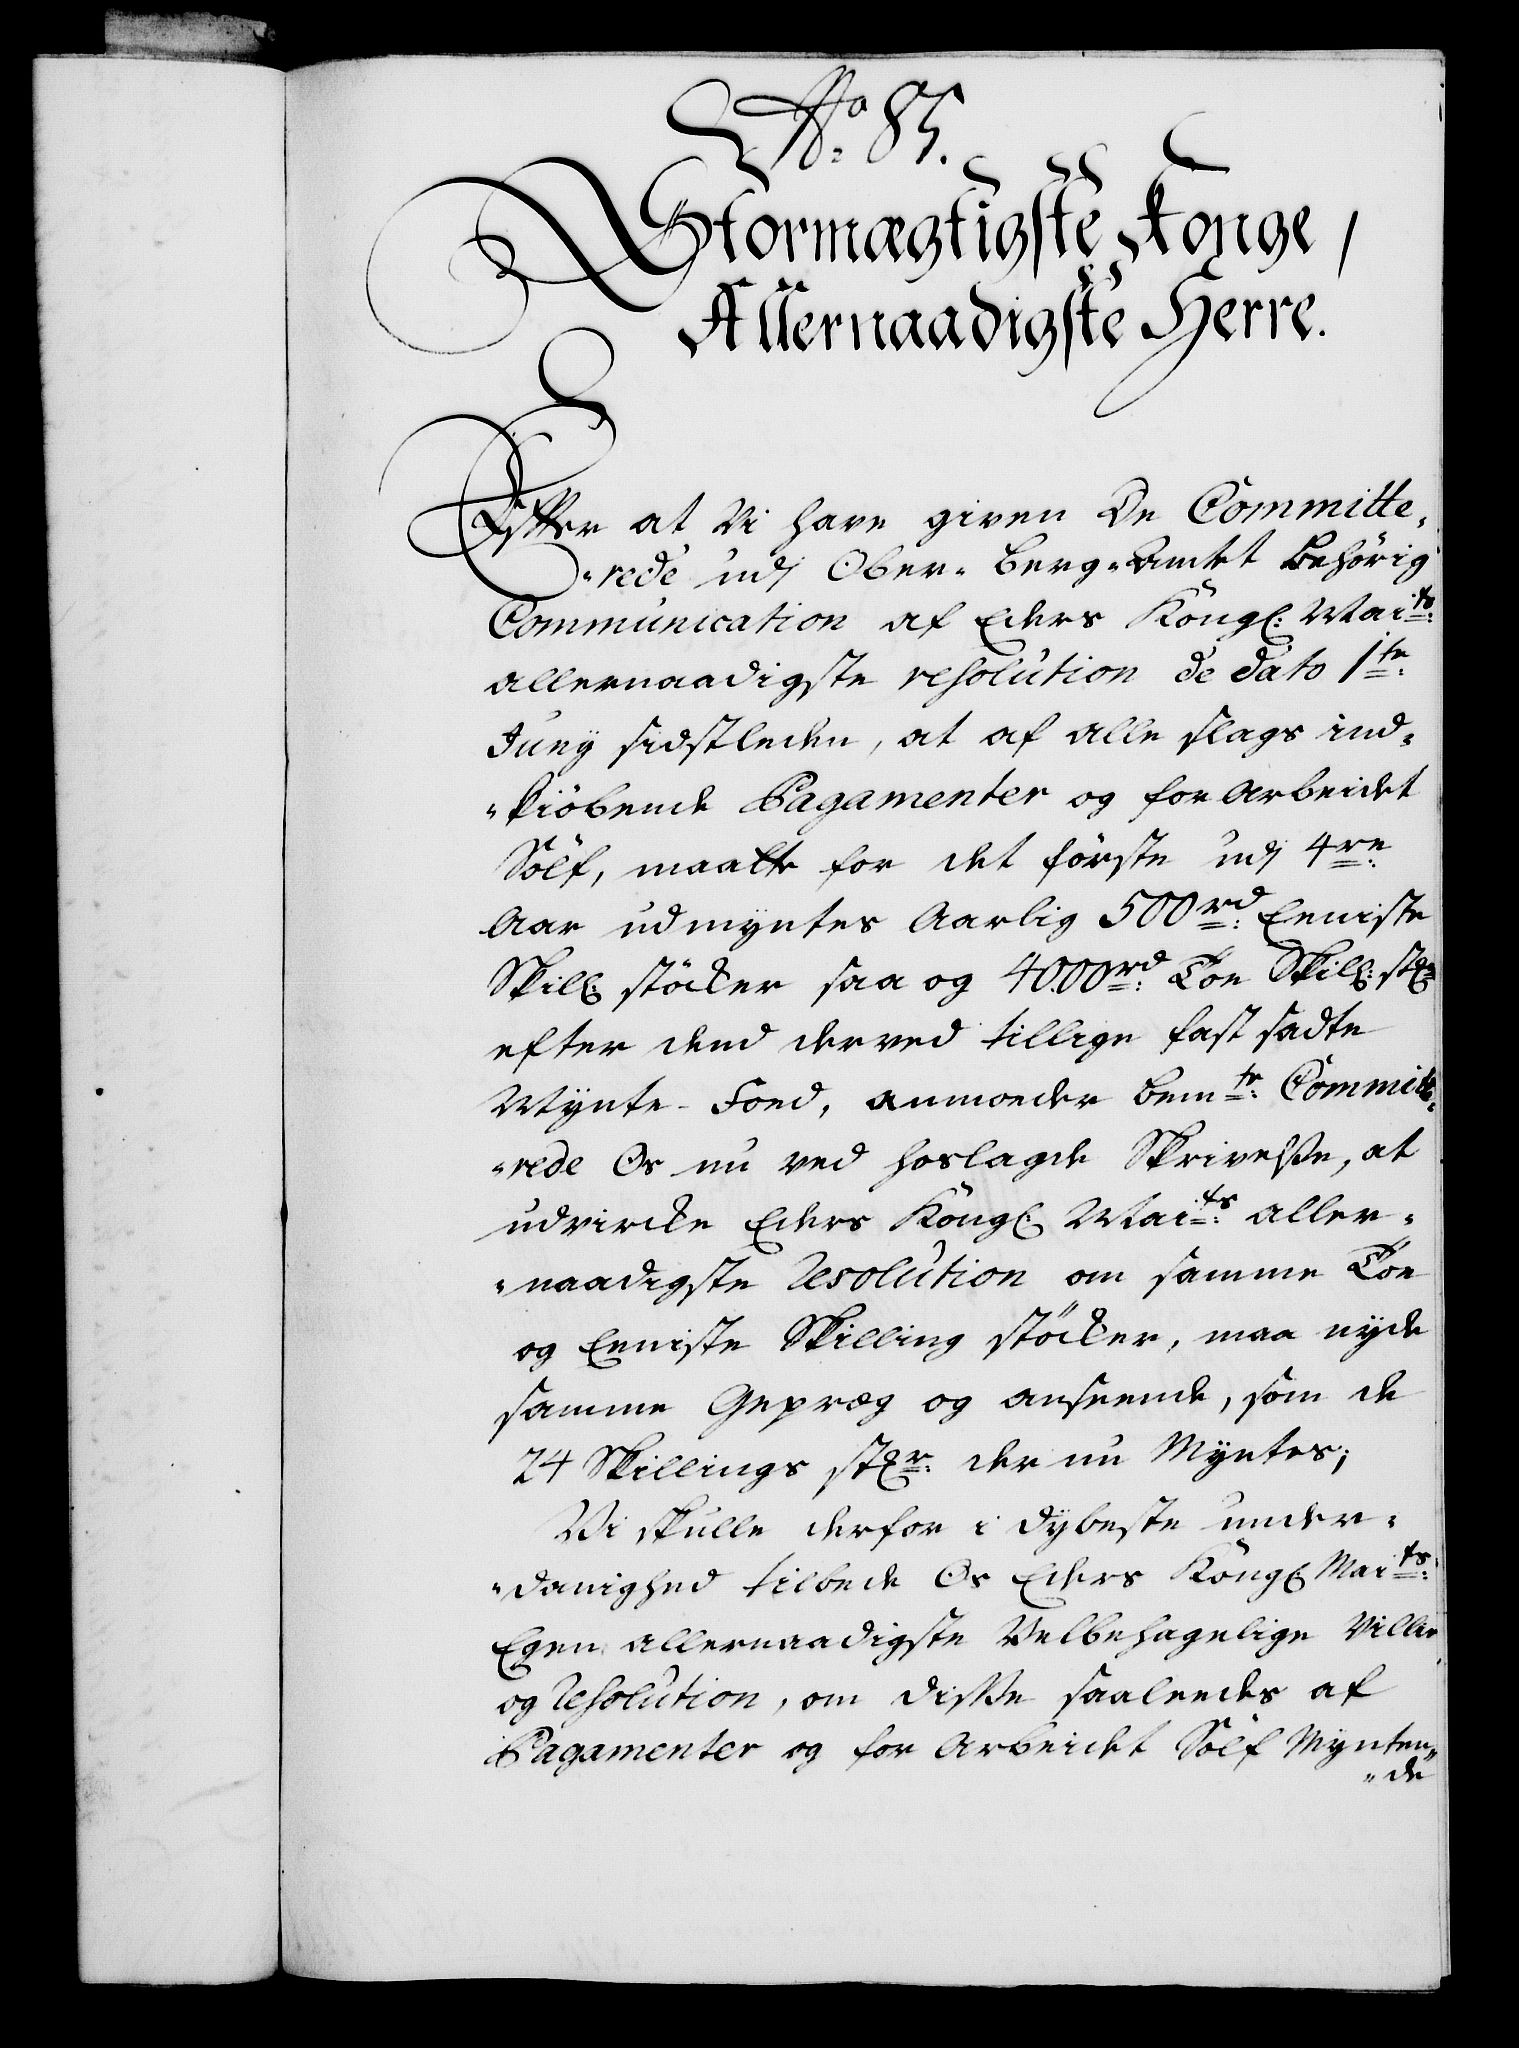 No. 85.
Stormægtigste Konge,
Allernaadigste Herre.
Efter at Vi have given De Committe-
-rede udj Ober-Berg-Amtet Behörig
Communication af Eders Kongl: Maits:
allernaadigste resolution de dato 1te:
Juny sidstleden, at af alle slags ind-
-kiöbende Pagamenter og forarbeidet
Sölf, maatte for det förste udj 4re:
Aar udmyntes Aarlig 500rd: Eeniste
Skill: stöcker saa og 4000rd: Toe Skill: st:
efter dend derved tillige fast sadte
Mynte-Foed, anmoeder bemte: Committe-
-rede Os nu ved hoslagde Skrivelsse, at
udvircke Eders Kongl: Maits: aller-
-naadigste Resolution om samme Toe
og Eeniste Skilling stöcker, maa nyde
samme Gepræg og anseende, som de
24 Skillings str: der nu Myntes;
Vi skulle derfor i dybeste under-
-danighed tilbede Os Eders Kongl: Maits:
Egen allernaadigste Velbehagelige Villie
og Resolution, om disse saaledes af
Pagamenter og forarbeidet Sölf Mynten-
-de